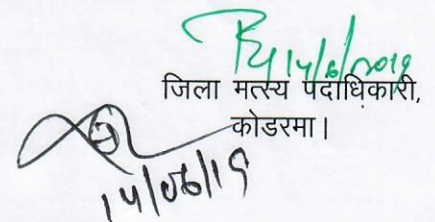 14/6/2019
जिला मत्स्य पदाधिकारी,
कोडरमा।
14/06/19